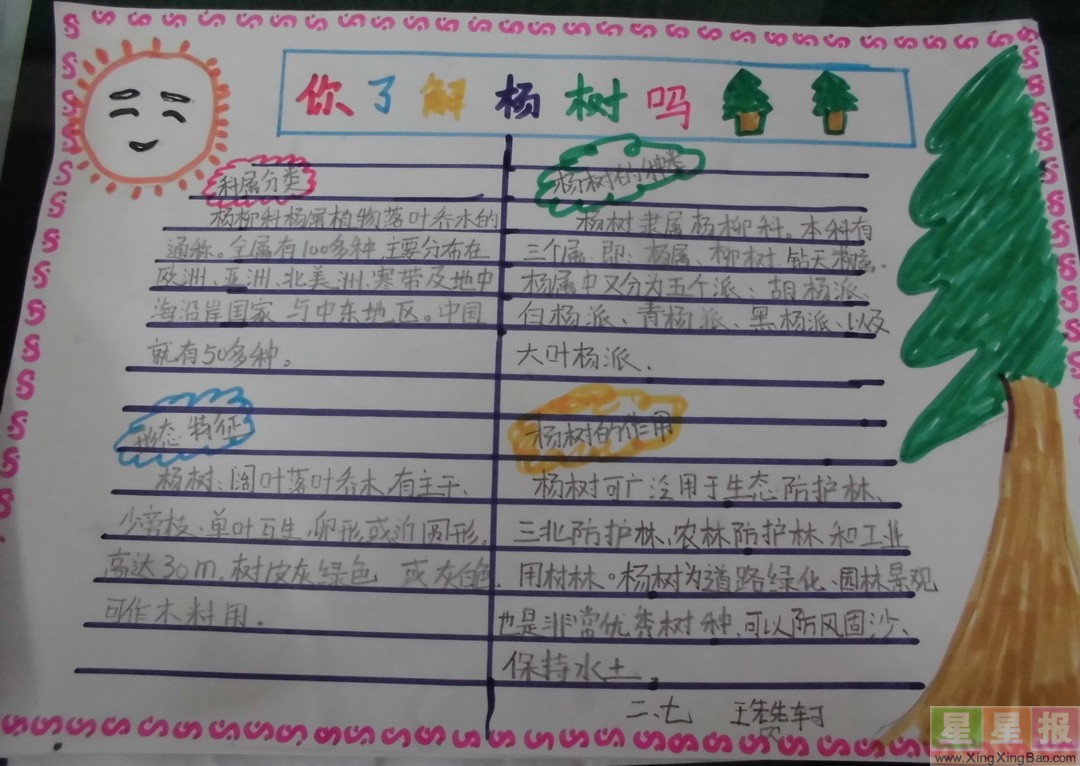 你了解杨树吗
科属分类
杨柳科杨属植物落叶乔木的
通称。全属有100多种,主要分布在
欧洲、亚洲、北美洲、寒带及地中
海沿岸国家与中东地区。中国
就有50多种。
杨树的种类
杨树隶属杨柳科。本科有
三个属、即:杨属、柳树、钻天柳属。
杨属中又分为五个派:胡杨派、
白杨派、青杨派、黑杨派、以及
大叶杨派.
形态特征
杨树:阔叶落叶乔木,有主干、
少旁枝、单叶互生,卵形或近圆形,
高达30m,树皮灰绿色 或灰白色,
可作木料用.
杨树的作用
杨树可广泛用于生态防护林、
三北防护林、农林防护林和工业
用材林。杨树为道路绿化、园林景观
也是非常优秀树种,可以防风固沙、
保持水土。
二、七
星星报
www.XingXingBao.com